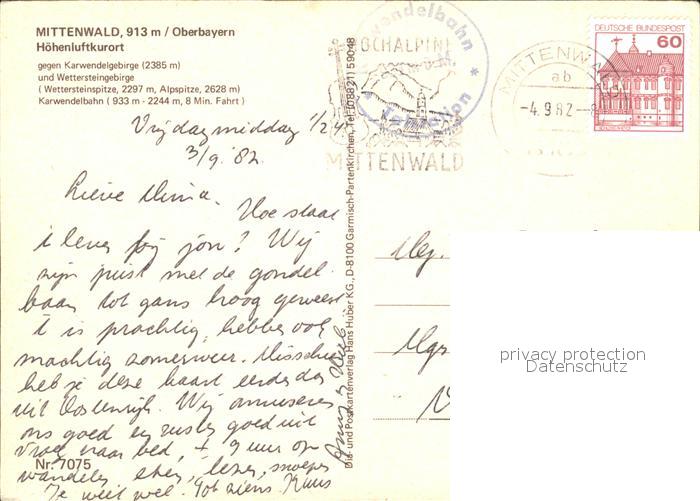 MITTENWALD, 913 m / Oberbayern
Höhenluftkurort
gegen Karwendelgebirge (2385 m)
und Wettersteingebirge
( Wettersteinspitze, 2297 m, Alpspitze, 2628 m)
Karwendelbahn ( 933 m - 2244 m, 8 Min. Fahrt )
DEUTSCHE BUNDESPOST
60
MITTENWALD
ab
-4.9.82-
HOCHALPINE
MITTENWALD
Karwendelbahn
Vrijdagmiddag 1/2 4
3/9 '82
Lieve Mima. Hoe staat
't leven bij jou? Wij
zijn juist met de gondel
baan tot gans hoog geweest
't is prachtig, hebben ook
machtig zomerweer. Misschien
heb je deze kaart eerder dan
uit Oostenrijk. Wij amuseren
ons goed en rusten goed uit
vroeg naar bed, ± 9 uur op
wandelen, eten, lezen, snoepen
Je weet wel. Tot ziens Kus
Nr. 7075
Dia- und Postkartenverlag Hans Huber KG., D-8100 Garmisch-Partenkirchen, Tel. (08821) 59048
privacy protection
Datenschutz